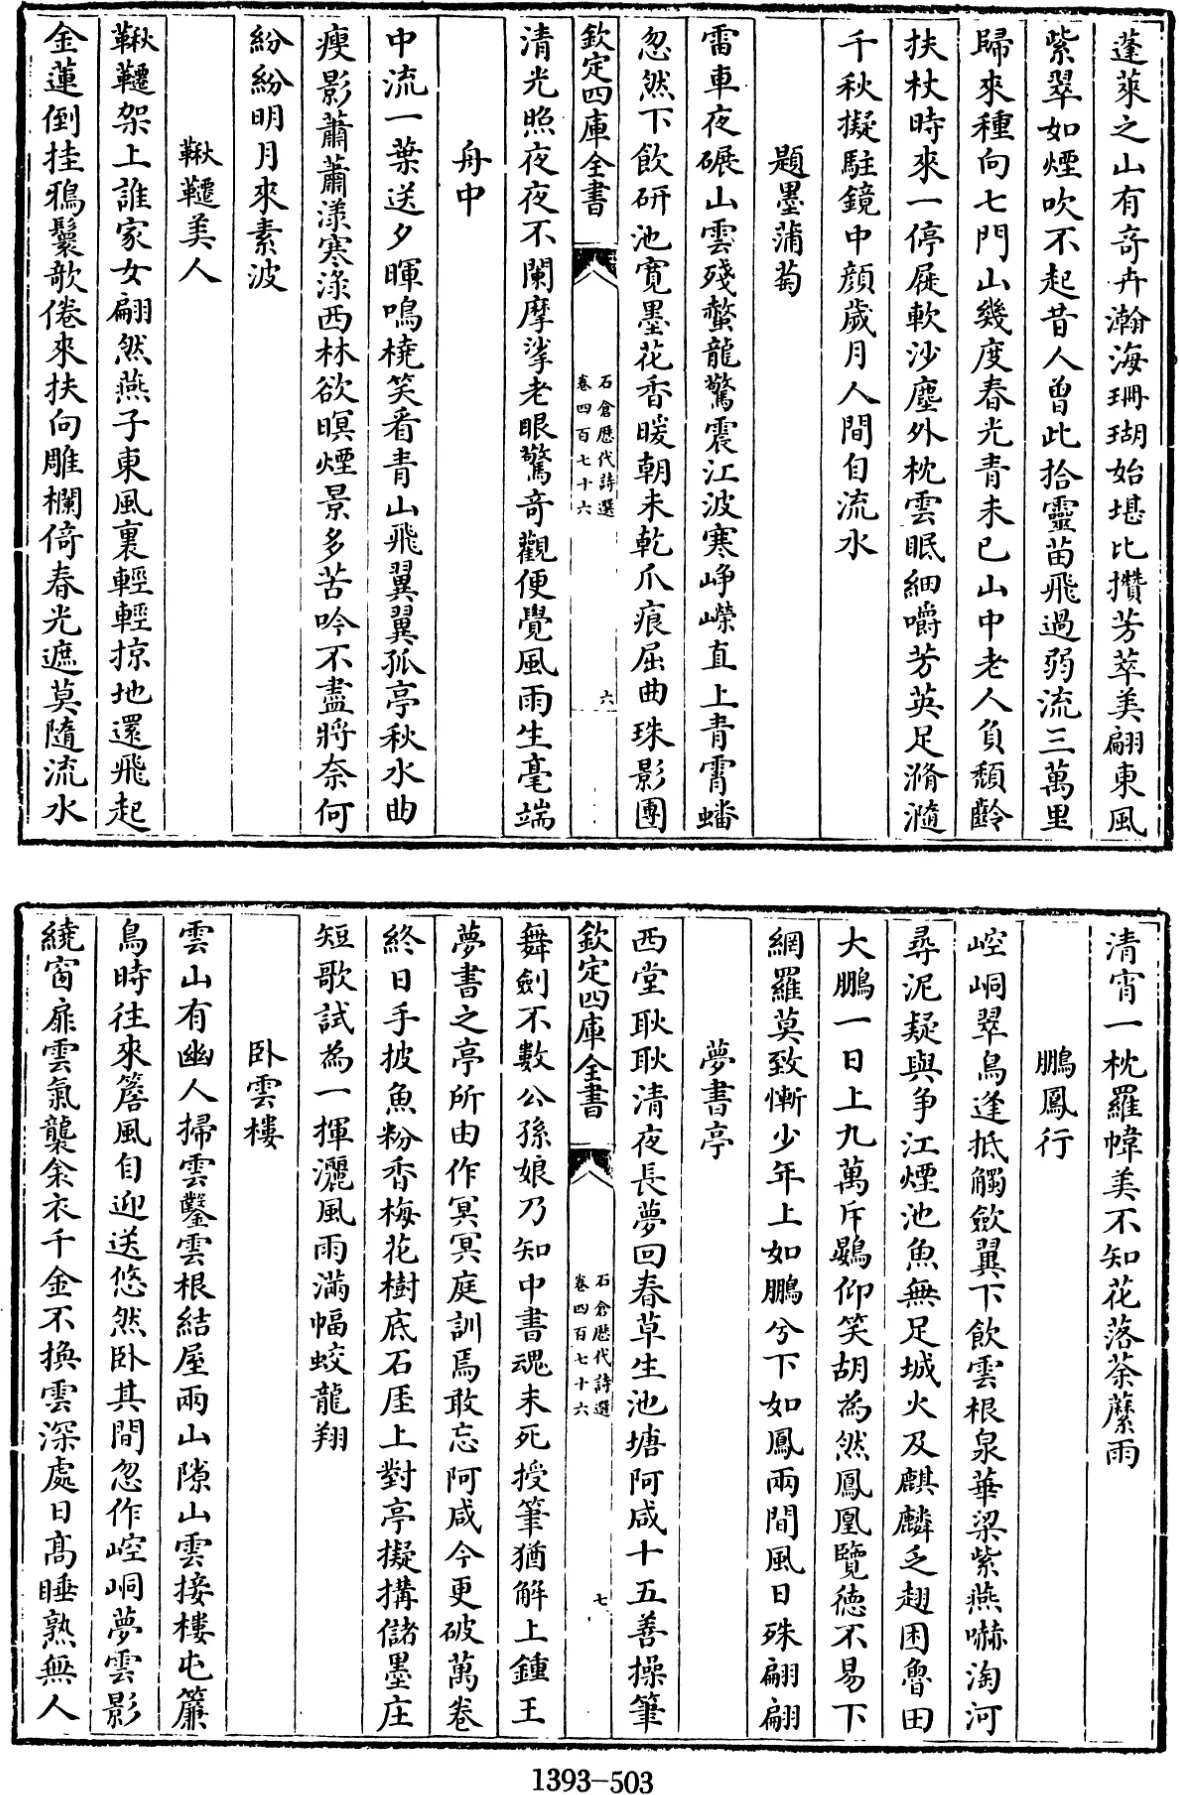 蓬萊之山有奇卉瀚海珊瑚始堪比攢芳萃美翩東風
紫翠如煙吹不起昔人曾此拾靈苗飛過弱流三萬里
歸來種向七門山幾度春光青未已山中老人負頽齡
扶杖時來一停屣軟沙塵外枕雲眠細嚼芳英足滫瀡
千秋擬駐鏡中顔歲月人間自流水
題墨蒲萄
雷車夜碾山雲殘螯龍驚震江波寒崢嶸直上青霄蟠
忽然下飲研池寛墨花香暖朝未乾爪痕屈曲珠影團
欽定四庫全書
石倉歴代詩選
卷四百七十六
六
清光照夜夜不闌摩挲老眼驚奇觀便覺風雨生毫端
舟中
中流一葉送夕暉鳴橈笑看青山飛翼翼孤亭秋水曲
瘦影蕭蕭漾寒淥西林欲暝煙景多苦吟不盡將奈何
紛紛明月來素波
鞦韆美人
鞦韆架上誰家女翩然燕子東風裏輕輕掠地還飛起
金蓮倒挂鴉鬟欹倦來扶向雕欄倚春光遮莫隨流水
清宵一枕羅幃美不知花落荼蘼雨
鵬鳳行
崆峒翠鳥逢抵觸斂翼下飲雲根泉華梁紫燕嚇淘河
尋泥疑與争江煙池魚無足城火及麒麟乏趐困魯田
大鵬一日上九萬斥鷃仰笑胡為然鳳凰覽徳不易下
網羅莫致慚少年上如鵬兮下如鳳兩間風日殊翩翩
夢書亭
西堂耿耿清夜長夢回春草生池塘阿咸十五善操筆
欽定四庫全書
石倉歴代詩選
卷四百七十六
七
舞劍不數公孫娘乃知中書魂未死授筆猶解上鍾王
夢書之亭所由作冥冥庭訓焉敢忘阿咸今更破萬卷
終日手披魚粉香梅花樹底石厓上對亭擬搆儲墨庄
短歌試為一揮灑風雨滿幅蛟龍翔
卧雲樓
雲山有幽人掃雲鑿雲根結屋兩山隙山雲接樓屯簾
鳥時往來簷風自迎送悠然卧其間忽作崆峒夢雲影
繞窗扉雲氣襲余衣千金不換雲深處日髙睡熟無人
1393-503